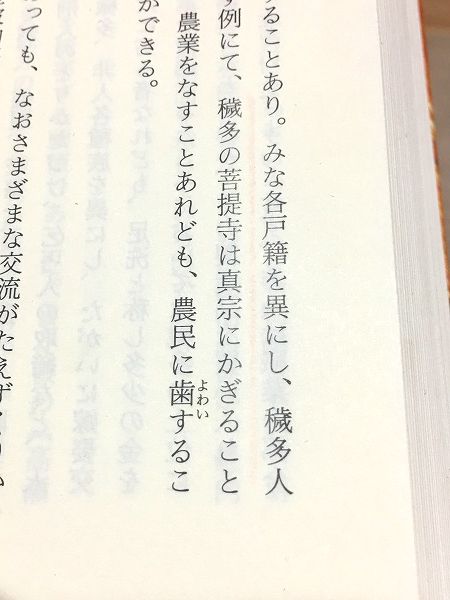 することあり。みな各戸籍を異にし、穢多人
す例にて、穢多の菩提寺は真宗にかぎること
農業をなすことあれども、農民に歯するこ
よわい
ができる。
っても、なおさまざまな交流がたえず